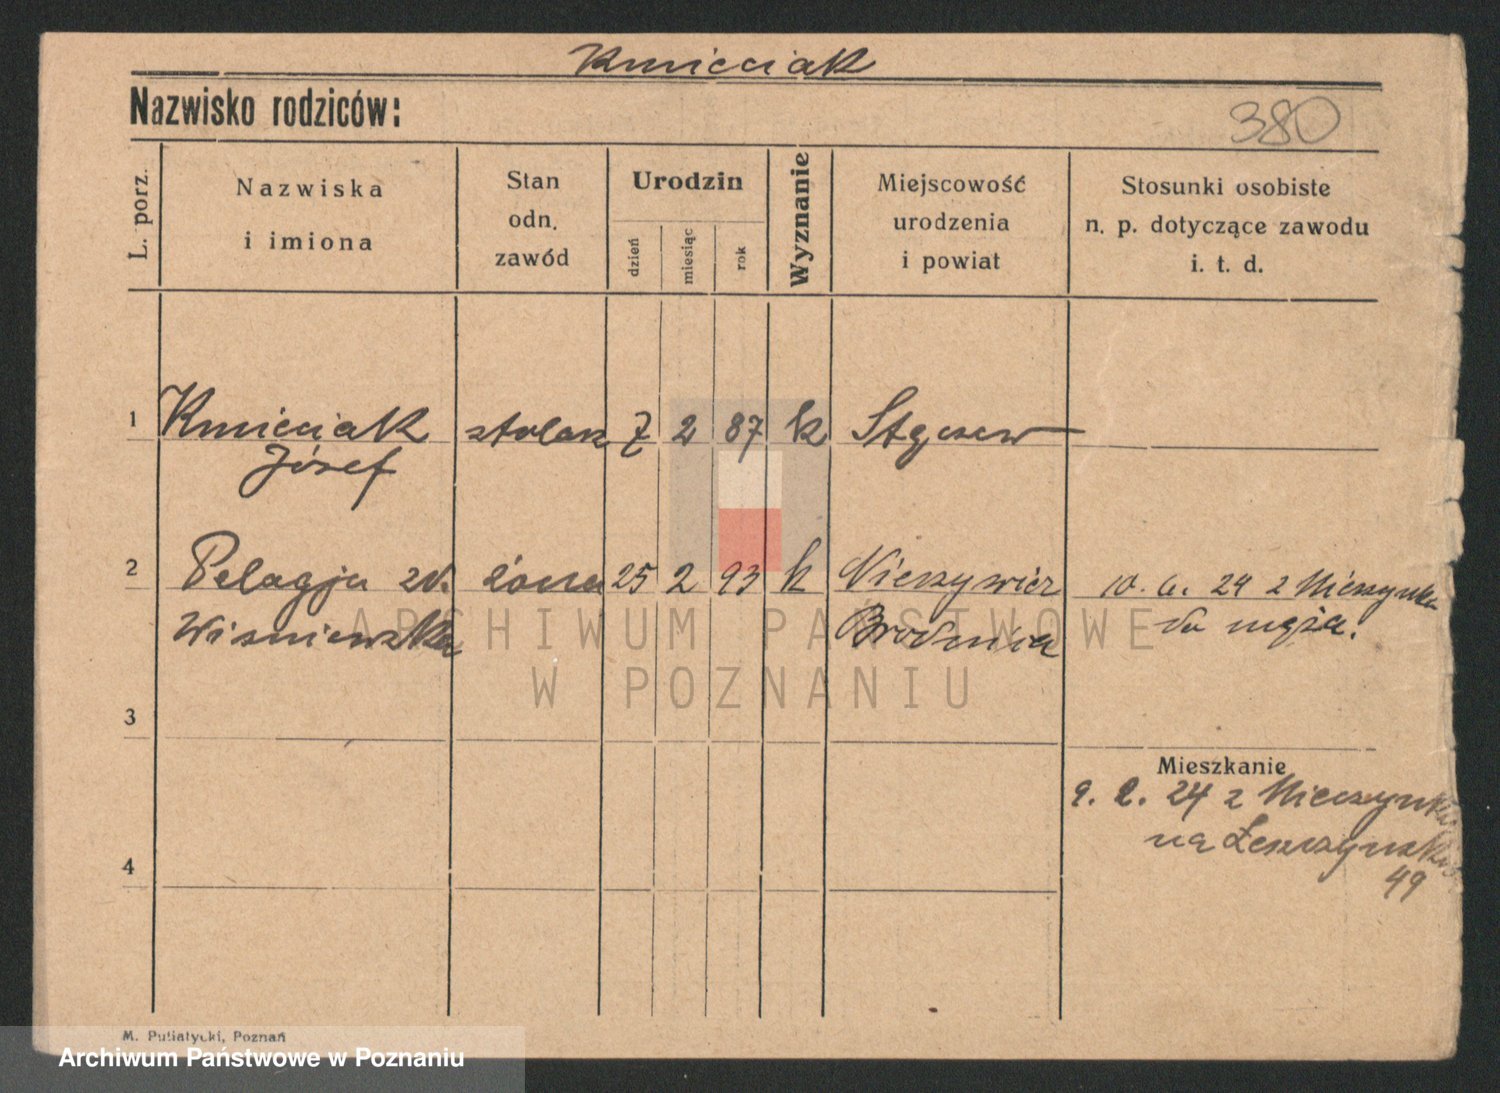 Kmieciak
Nazwisko rodziców:
380
L. porz.
Nazwiska
i imiona
Stan
odn.
zawód
Urodzin
dzień
miesiąc
rok
Wyznanie
Miejscowość
urodzenia
i powiat
Stosunki osobiste
n. p. dotyczące zawodu
i. t. d.
1 Kmieciak stolarz 7 2 87 k
Józef
2 Pelagja żona 25 2 93 k 10. 24 z
Wiśniewska Brodnica do męża.
3
Mieszkanie
9. 2. 24 z
na
4
49
M. Putiatycki, Poznań
ARCHIWUM PAŃSTWOWE
W POZNANIU
Archiwum Państwowe w Poznaniu